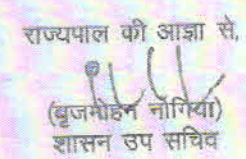 राज्यपाल की आज्ञा से,
(बृजमोहन नोगिया)
शासन उप सचिव